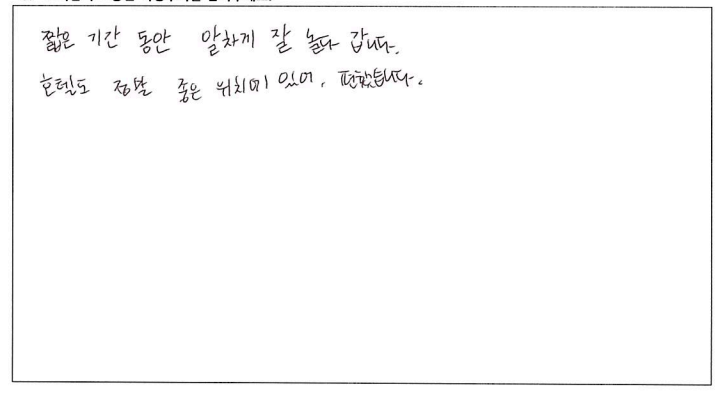 짧은 기간 동안 알차게 잘 놀다 갑니다.
호텔도 정말 좋은 위치에 있어, 편했습니다.